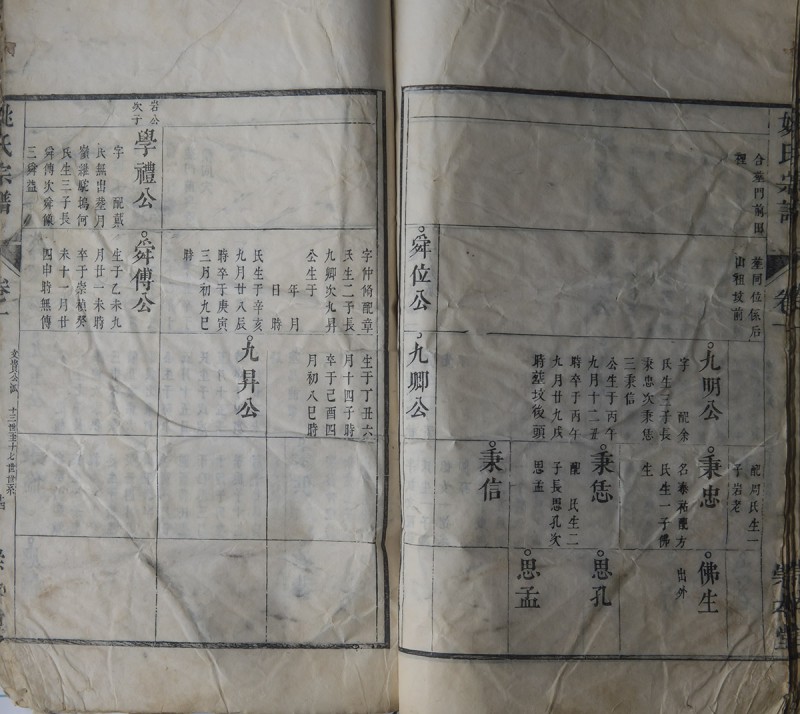 姚氏宗譜
卷一
合葬門前園
裡
葬阿位係后
山祖坟前
配周氏生二
子岩老
九明公
字 配余
氏生三子長
秉忠次秉恁
三秉信
公生于丙午
九月十二丑
時卒于丙午
九月廿九戌
時塟坟後頭
秉忠
名泰祐配方
氏生一子佛
生
佛生
出外
秉恁
配 氏生二
子長思孔次
思孟
思孔
思孟
秉信
舜位公
九卿公
字仲脩配章
氏生二子長
九卿次九昇
公生于
年 月
日 時
氏生于辛亥
九月廿八辰
時卒于庚寅
三月初九巳
時
生于丁丑六
月十四子時
卒于己酉四
月初八巳時
九昇公
岩公
次子
學禮公
字 配戴
氏無出葬月
嶺雞駝塢何
氏生三子長
舜傅次舜
三舜益
舜傅公
生于乙未九
月廿一未時
卒于崇禎癸
未十一月廿
四申時無傳
姚氏宗譜
卷一
文貴公派 十三世至十七世世系